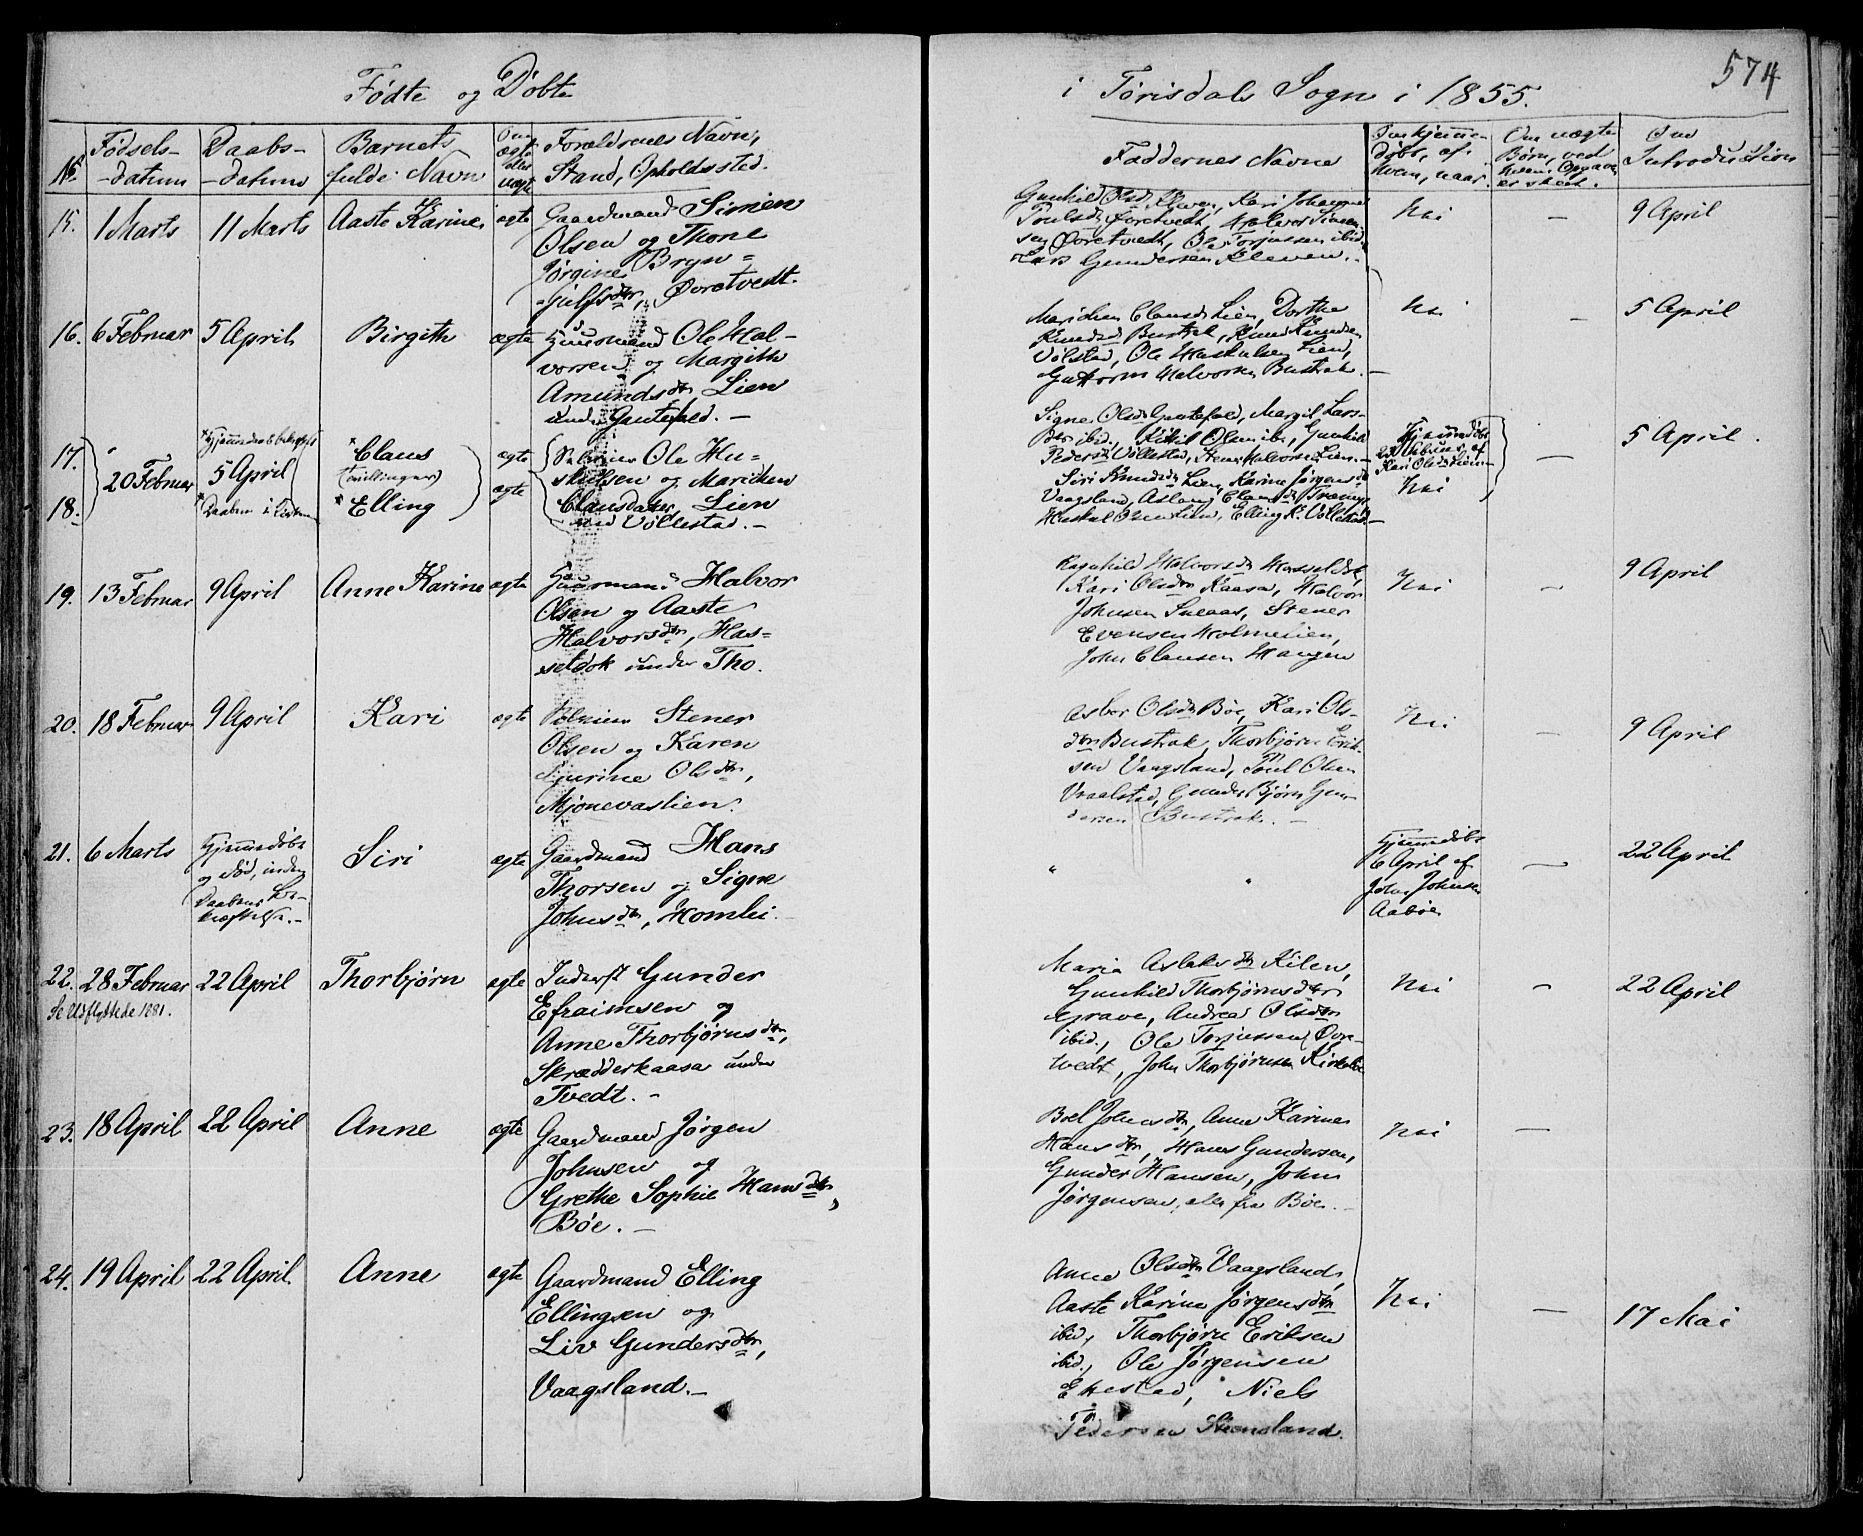 574
Fødte og Døbte
i Tørisdals Sogn i 1855.
No
Fødsels-
-datum
Daabs-
-datum
Barnets
fulde Navn
Om
ægte
eller
uægte
Forældrenes Navn,
Stand, Opholdssted.
Faddernes Navne
døbt, af
hvem, naar.
Om uægte
Børn, ved
Introduction
15.
1 Marts
11 Marts
Aaste Karine
ægte
Gaardmand Simen
Olsen og Thone
Jørgine Bryn=
julfsdtr, Øvretvedt.
Øvretvedt, Ole Torjussen ibid.
Lars Gundersen Kleven.
Nei
—
9 April
16.
6 Februar
5 April
Birgith
ægte
Huusmand Ole Hal-
vorsen og Margith
Amundsdtr, Lien
under Gautefald. —
Marichen Clausd Lien, Dorthe
Knudsd Bustrak,
Vølstad, Ole
Guttorm Halvorsen Bustrak. —
Nei
—
5 April
17.
18.
20 Februar
5 April
* Claus
(tvillinger)
* Elling
ægte
ægte
Ole Hu=
skulsen og Marichen
Clausdatter, Lien
ved Vøllestad. —
Signe Olsd Gautefald, Margit Lars-
dtr ibid., Kittil Olsen ib., Gunhild
Pedersd Vøllestad, Halvorsen Lien. —
Siri Knudsd Lien, Karine Jørgensd
Vaagsland, Aslaug Clausd
Olsen Lien, Elling K. Vøllestad. —
Hjemmedøbt
af
Kari Olsd Lien
Nei
—
5 April.
19.
13 Februar
9 April
Anne Karine
ægte
Huusmand Halvor
Olsen og Aaste
Halvorsdtr, Has=
seldok under Tho.
Ragnhild Halvorsd Hasseldok,
Kari Olsdtr Kaasa, Halvor
Johnsen Sneaas, Stener
Evensen Holmelien,
John Clausen Haugen
Nei
—
9 April
20.
18 Februar
9 April
Kari
ægte
Stener
Olsen og Karen
Gurine Olsdtr,
Mjonevaslien.
Asber Olsd Bøe, Kari Ols-
dtr Bustrak, Thorbjørn Erik-
sen Vaagsland, Poul Olsen
Vraalstad, Gunder Bjørn Gun-
dersen Bustrak. —
Nei
—
9 April
21.
6 Marts
Hjemmedøbt
og død, inden
Daabens Be-
kræftelse. —
Siri
ægte
Gaardmand Hans
Thorsen og Signe
Johnsdtr, Homlei.
"
"
Hjemmedøbt
6 April af
John Johnsen
Aabøe
—
22 April
22.
Se Udflyttede 1881.
28 Februar
22 April
Thorbjørn
ægte
Inderst Gunder
Efraimsen og
Anne Thorbjørnsdtr,
Skrædderkaasa under
Tvedt. —
Maria Aslaksdtr Kilen,
Gunhild Thorbjørnsdtr
Grave, Andrea Olsdtr
ibid., Ole Torjussen Øvre-
tvedt, John Thorbjørnsen Kirkebø
Nei
—
22 April
23.
18 April
22 April
Anne
ægte
Gaardmand Jørgen
Johnsen og
Grethe Sophie Hansdtr,
Bøe. —
Boel Johnsdtr, Anne Karine
Hansdtr, Hans Gundersen,
Gunder Hansen, John
Jørgensen, alle fra Bøe. —
Nei
—
24.
19 April
22 April
Anne
ægte
Gaardmand Elling
Ellingsen og
Liv Gundersdtr,
Vaagsland. —
Anne Olsdtr Vaagsland,
Aaste Karine Jørgensdtr
ibid., Thorbjørn Eriksen
ibid., Ole Jørgensen
Ekestad, Niels
Pedersen Steensland.
Nei
—
17 Mai